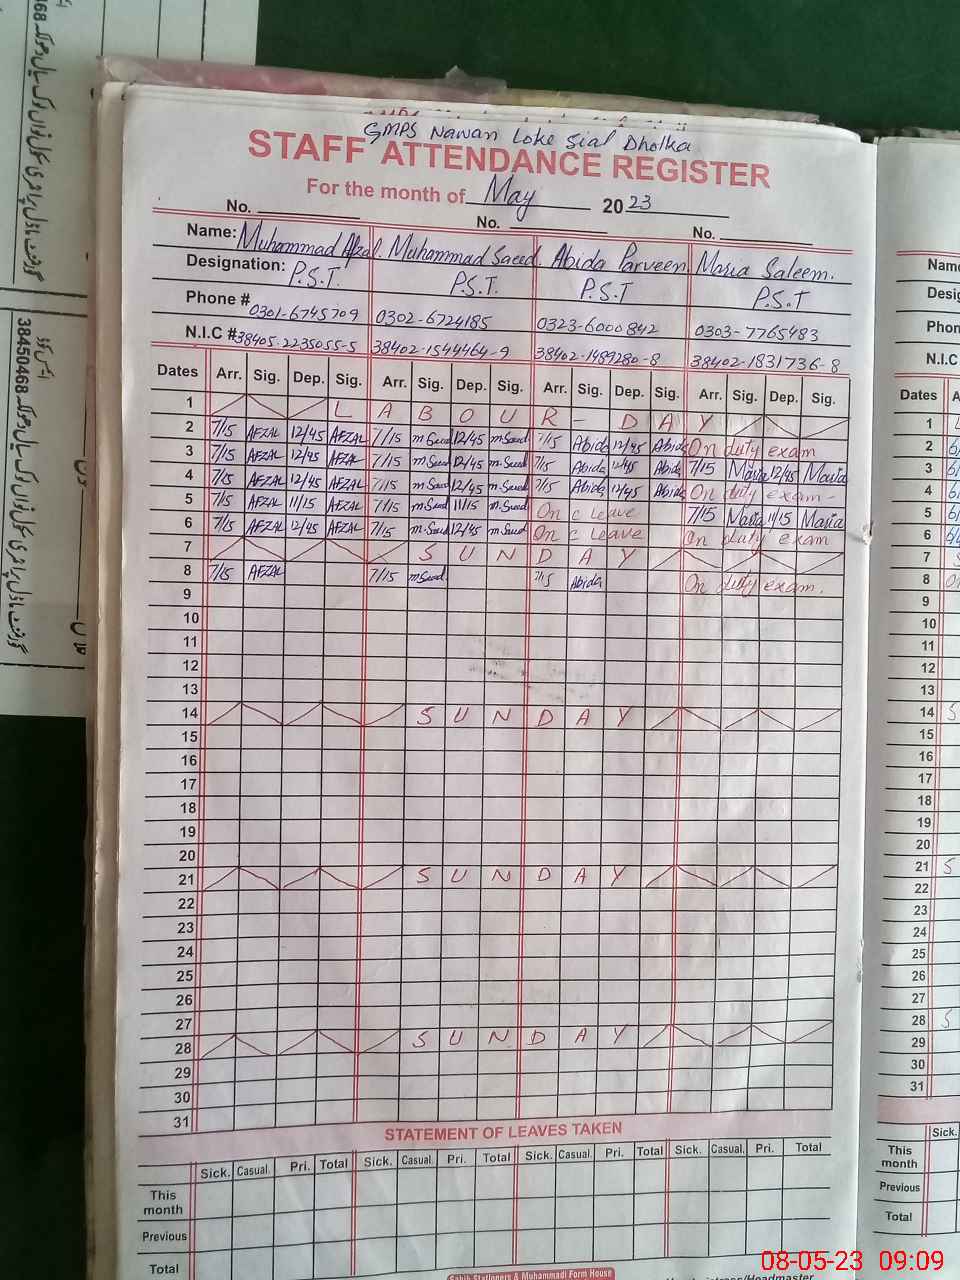 GMPS Nawan Loke Sial Dholka
STAFF ATTENDANCE REGISTER
For the month of May 2023
No. No. No.
Name: Muhammad Afzal. Muhammad Saeed. Abida Parveen Maria Saleem.
Designation: P.S.T. P.S.T. P.S.T P.S.T
Phone # 0301-6745709 0302-6724185 0323-6000842 0303-7765483
N.I.C # 38405-2235055-5 38402-1544464-9 38402-1489280-8 38402-1831736-8
Dates Arr. Sig. Dep. Sig. Arr. Sig. Dep. Sig. Arr. Sig. Dep. Sig. Arr. Sig. Dep. Sig.
1 LABOUR-DAY
2 7/15 AFZAL 12/45 AFZAL 7/15 m Saeed 12/45 m Saeed 7/15 Abida 12/45 Abida On duty exam
3 7/15 AFZAL 12/45 AFZAL 7/15 m Saeed 12/45 m Saeed 7/15 Abida 12/45 Abida 7/15 Maria 12/45 Maria
4 7/15 AFZAL 12/45 AFZAL 7/15 m Saeed 12/45 m Saeed 7/15 Abida 12/45 Abida On duty exam-
5 7/15 AFZAL 11/15 AFZAL 7/15 m Saeed 11/15 m Saeed On c leave 7/15 Maria 11/15 Maria
6 7/15 AFZAL 12/45 AFZAL 7/15 m Saeed 12/45 m Saeed On c leave On duty exam
7 SUNDAY
8 7/15 AFZAL 7/15 m Saeed 7/15 Abida On duty exam.
9
10
11
12
13
14 SUNDAY
15
16
17
18
19
20
21 SUNDAY
22
23
24
25
26
27
28 SUNDAY
29
30
31
STATEMENT OF LEAVES TAKEN
Sick. Casual. Pri. Total Sick. Casual. Pri. Total Sick. Casual. Pri. Total Sick. Casual. Pri. Total
This month
Previous
Total
Sahib Stationers & Muhammadi Form House
/Headmaster
Name
Desig
Phon
N.I.C
Dates A
1
2
3
4
5
6
7
8
9
10
11
12
13
14 S
15
16
17
18
19
20
21 S
22
23
24
25
26
27
28 S
29
30
31
Sick.
This month
Previous
Total
38450468
08-05-23 09:09